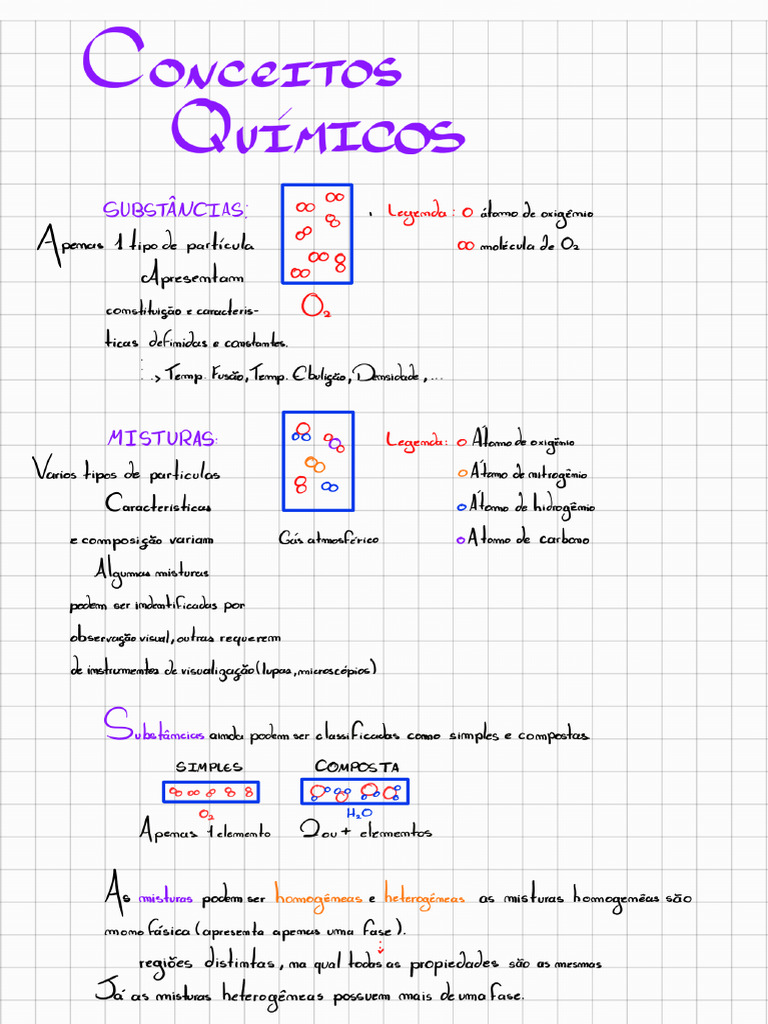 CONCEITOS
QUÍMICOS
SUBSTÂNCIAS:
Legenda: átomo de oxigênio
Apenas 1 tipo de partícula
molécula de O₂
Apresentam
constituição e caracterís-
O₂
ticas definidas e constantes.
...> Temp. Fusão, Temp. Ebulição, Densidade, ...
MISTURAS:
Legenda: Átomo de oxigênio
Varios tipos de particulas
Átomo de nitrogênio
Caracteristicas
Átomo de hidrogênio
e composição variam
Gás atmosférico
Átomo de carbono
Algumas misturas
podem ser indentificadas por
observação visual, outras requerem
de instrumentos de visualização (lupas, microscópios)
Substâncias ainda podem ser classificadas como simples e compostas
SIMPLES COMPOSTA
O₂ H₂O
Apenas 1 elemento 2 ou + elementos
As misturas podem ser homogêneas e heterogêneas as misturas homogenêas são
monofásica (apresenta apenas uma fase).
regiões distintas, na qual todas as propiedades são as mesmas
Já as misturas heterogêneas possuem mais de uma fase.